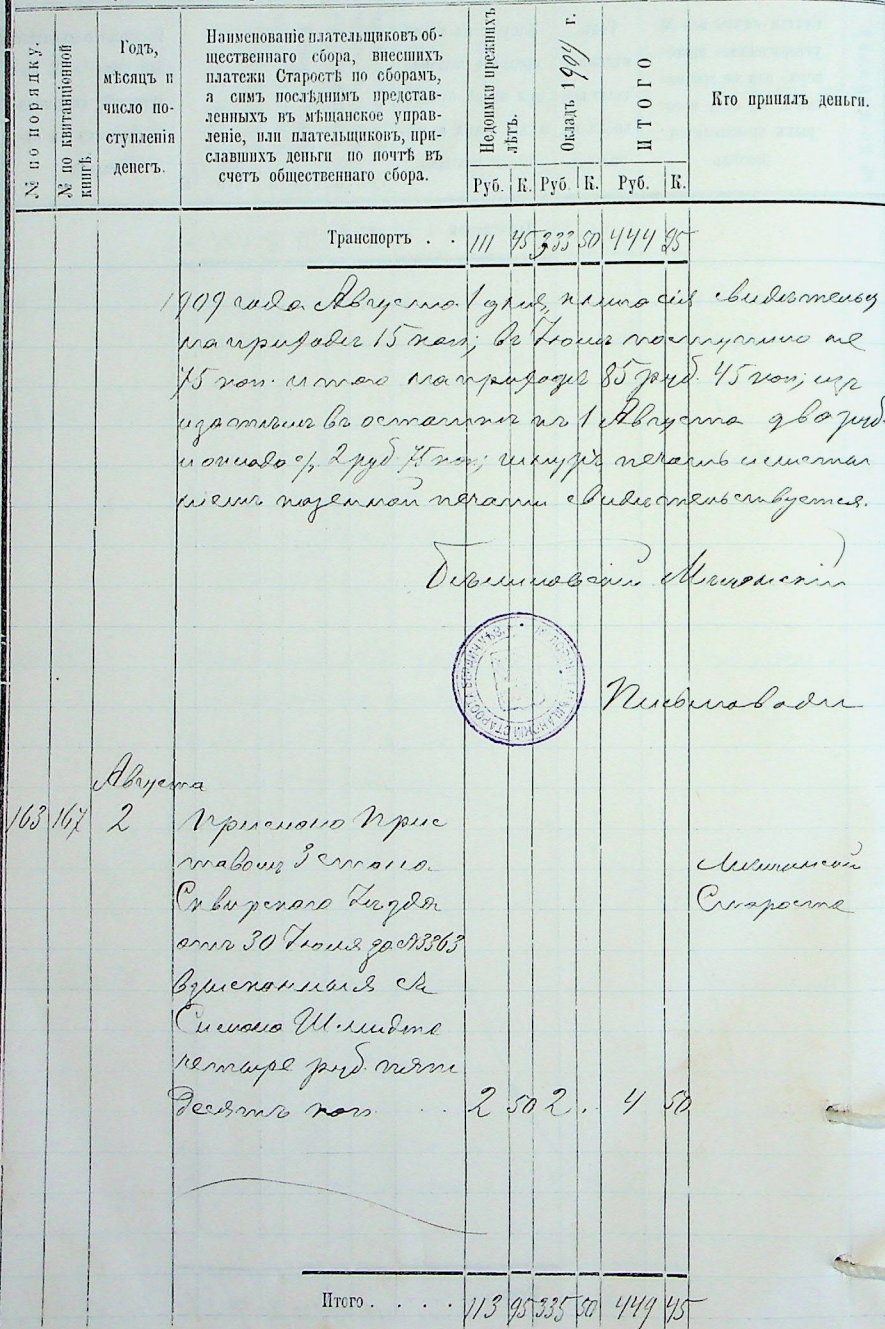 № по порядку.
№ по квитанціонной книгѣ.
Годъ,
мѣсяцъ и
число по-
ступленія
денегъ.
Наименованіе плательщиковъ об-
щественнаго сбора, внесшихъ
платежи Старостѣ по сборамъ,
а симъ послѣднимъ представ-
ленныхъ въ мѣщанское управ-
леніе, или плательщиковъ, при-
славшихъ деньги по почтѣ въ
счетъ общественнаго сбора.
Недоимки прежнихъ лѣтъ.
Окладъ 1909 г.
ИТОГО
Кто принялъ деньги.
Руб. К. Руб. К. Руб. К.
Транспортъ . . 111 45 333 50 444 95
1909 года Августа 1 дня, книга сія
на приходѣ 15 коп; въ Іюлѣ поступило
75 коп. итого на приходѣ 85 руб. 45 коп; изъ
въ остаткѣ къ 1 Августа два руб.
2 руб 75 коп; печать
казенной печати свидѣтельствуется.
Письмоводи
Августа
163 167 2 Прислано При
ставомъ 3 стана
Сквирскаго Уѣзда
отъ 30 Іюля за №3363
взысканныя съ
Симона Шмидта
четыре руб. пять
десятъ коп . . 2 50 2 . 4 50
Мѣщанскій
Староста
Итого . . . . 113 95 335 50 449 45